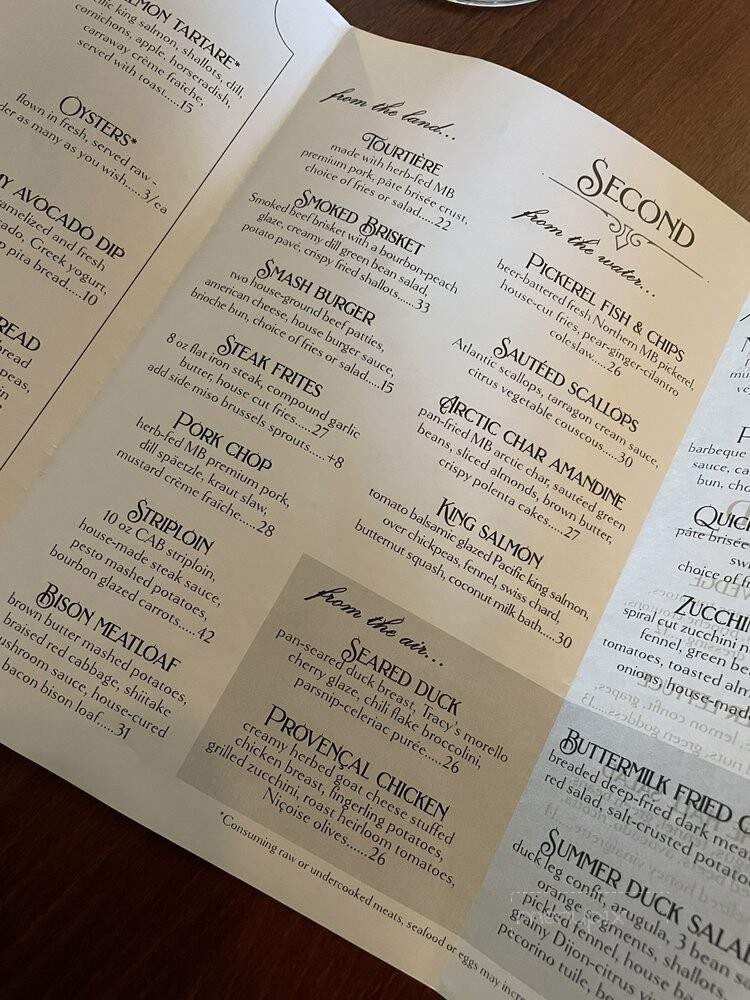 LMON TARTARE*
cific king salmon, shallots, dill,
cornichons, apple, horseradish,
carraway crème fraîche,
served with toast.....15
OYSTERS*
flown in fresh, served raw -
der as many as you wish.....3/ea
Y AVOCADO DIP
ramelized and fresh
cado, Greek yogurt,
p pita bread.....10
READ
bread
peas,
in
from the land...
TOURTIÈRE
made with herb-fed MB
premium pork, pâte brisée crust,
choice of fries or salad.....22
SMOKED BRISKET
Smoked beef brisket with a bourbon-peach
glaze, creamy dill green bean salad,
potato pavé, crispy fried shallots.....33
SMASH BURGER
two house-ground beef patties,
american cheese, house burger sauce,
brioche bun, choice of fries or salad....15
STEAK FRITES
8 oz flat iron steak, compound garlic
butter, house cut fries.....27
add side miso brussels sprouts.....+8
PORK CHOP
herb-fed MB premium pork,
dill späetzle, kraut slaw,
mustard crème fraîche.....28
STRIPLOIN
10 oz CAB striploin,
house-made steak sauce,
pesto mashed potatoes,
bourbon glazed carrots.....42
BISON MEATLOAF
brown butter mashed potatoes,
braised red cabbage, shiitake
ushroom sauce, house-cured
bacon bison loaf.....31
SECOND
from the water...
PICKEREL FISH & CHIPS
beer-battered fresh Northern MB pickerel,
house-cut fries, pear-ginger-cilantro
coleslaw.....26
SAUTÉED SCALLOPS
Atlantic scallops, tarragon cream sauce,
citrus vegetable couscous.....30
ARCTIC CHAR AMANDINE
pan-fried MB arctic char, sautéed green
beans, sliced almonds, brown butter,
crispy polenta cakes.....27
KING SALMON
tomato balsamic glazed Pacific king salmon,
over chickpeas, fennel, swiss chard,
butternut squash, coconut milk bath.....30
from the air...
SEARED DUCK
pan-seared duck breast, Tracy's morello
cherry glaze, chili flake broccolini,
parsnip-celeriac purée.....26
PROVENÇAL CHICKEN
creamy herbed goat cheese stuffed
chicken breast, fingerling potatoes,
grilled zucchini, roast heirloom tomatoes,
Niçoise olives......26
*Consuming raw or undercooked meats, seafood or eggs may incre
barbeque
sauce, ca
bun, cho
QUIC
pâte brisée
swi
choice of f
ZUCCHIN
spiral cut zucchini n
fennel, green bea
tomatoes, toasted alm
onions, house-mad
BUTTERMILK FRIED C
breaded deep-fried dark mea
red salad, salt-crusted potato
SUMMER DUCK SALA
duck leg confit, arugula, 3 bean sa
orange segments, shallots,
pickled fennel, house b
grainy Dijon-citrus vi
pecorino tuile, b